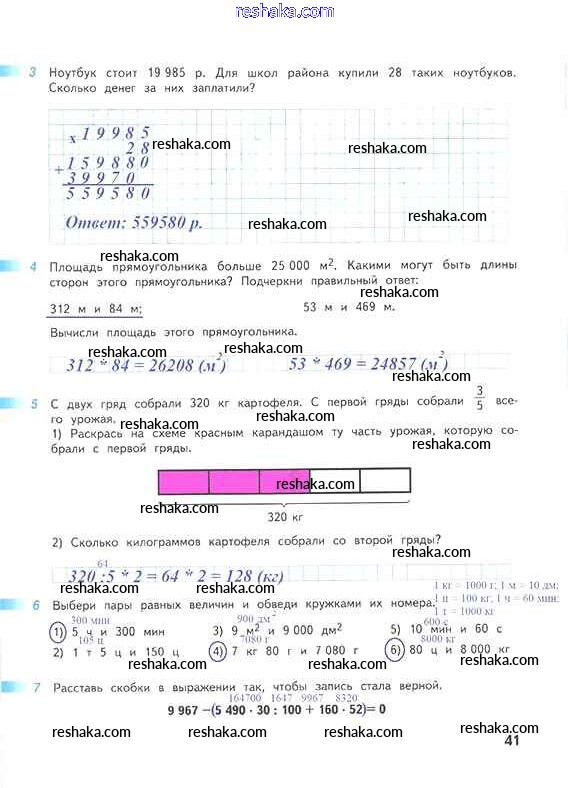 reshaka.com
3 Ноутбук стоит 19 985 р. Для школ района купили 28 таких ноутбуков.
Сколько денег за них заплатили?
x 19985
28
reshaka.com
reshaka.com
+ 159880
reshaka.com
39970
559580
Ответ: 559580 р.
reshaka.com
reshaka.com
reshaka.com
4 Площадь прямоугольника больше 25 000 м². Какими могут быть длины
сторон этого прямоугольника? Подчеркни правильный ответ:
reshaka.com
reshaka.com
312 м и 84 м;
53 м и 469 м.
Вычисли площадь этого прямоугольника.
reshaka.com
reshaka.com
312 * 84 = 26208 (м²)
53 * 469 = 24857 (м²)
reshaka.com
5 С двух гряд собрали 320 кг картофеля. С первой гряды собрали 3/5 все-
го урожая.
reshaka.com
reshaka.com
1) Раскрась на схеме красным карандашом ту часть урожая, которую со-
брали с первой гряды.
reshaka.com
reshaka.com
reshaka.com
320 кг
2) Сколько килограммов картофеля собрали со второй гряды?
reshaka.com
64
320 :5 * 2 = 64 * 2 = 128 (кг)
reshaka.com
1 кг = 1000 г; 1 м = 10 дм;
1 ц = 100 кг; 1 ч = 60 мин;
1 т = 1000 кг
6 Выбери пары равных величин и обведи кружками их номера.
300 мин
900 дм²
600 с
1) 5 ч и 300 мин
3) 9 м² и 9 000 дм²
5) 10 мин и 60 с
105 ц
7080 г
8000 кг
2) 1 т 5 ц и 150 ц
4) 7 кг 80 г и 7 080 г
6) 80 ц и 8 000 кг
reshaka.com
reshaka.com
reshaka.com
7 Расставь скобки в выражении так, чтобы запись стала верной.
164700 1647 9967 8320
9 967 −(5 490 · 30 : 100 + 160 · 52)= 0
reshaka.com
reshaka.com
reshaka.com
41